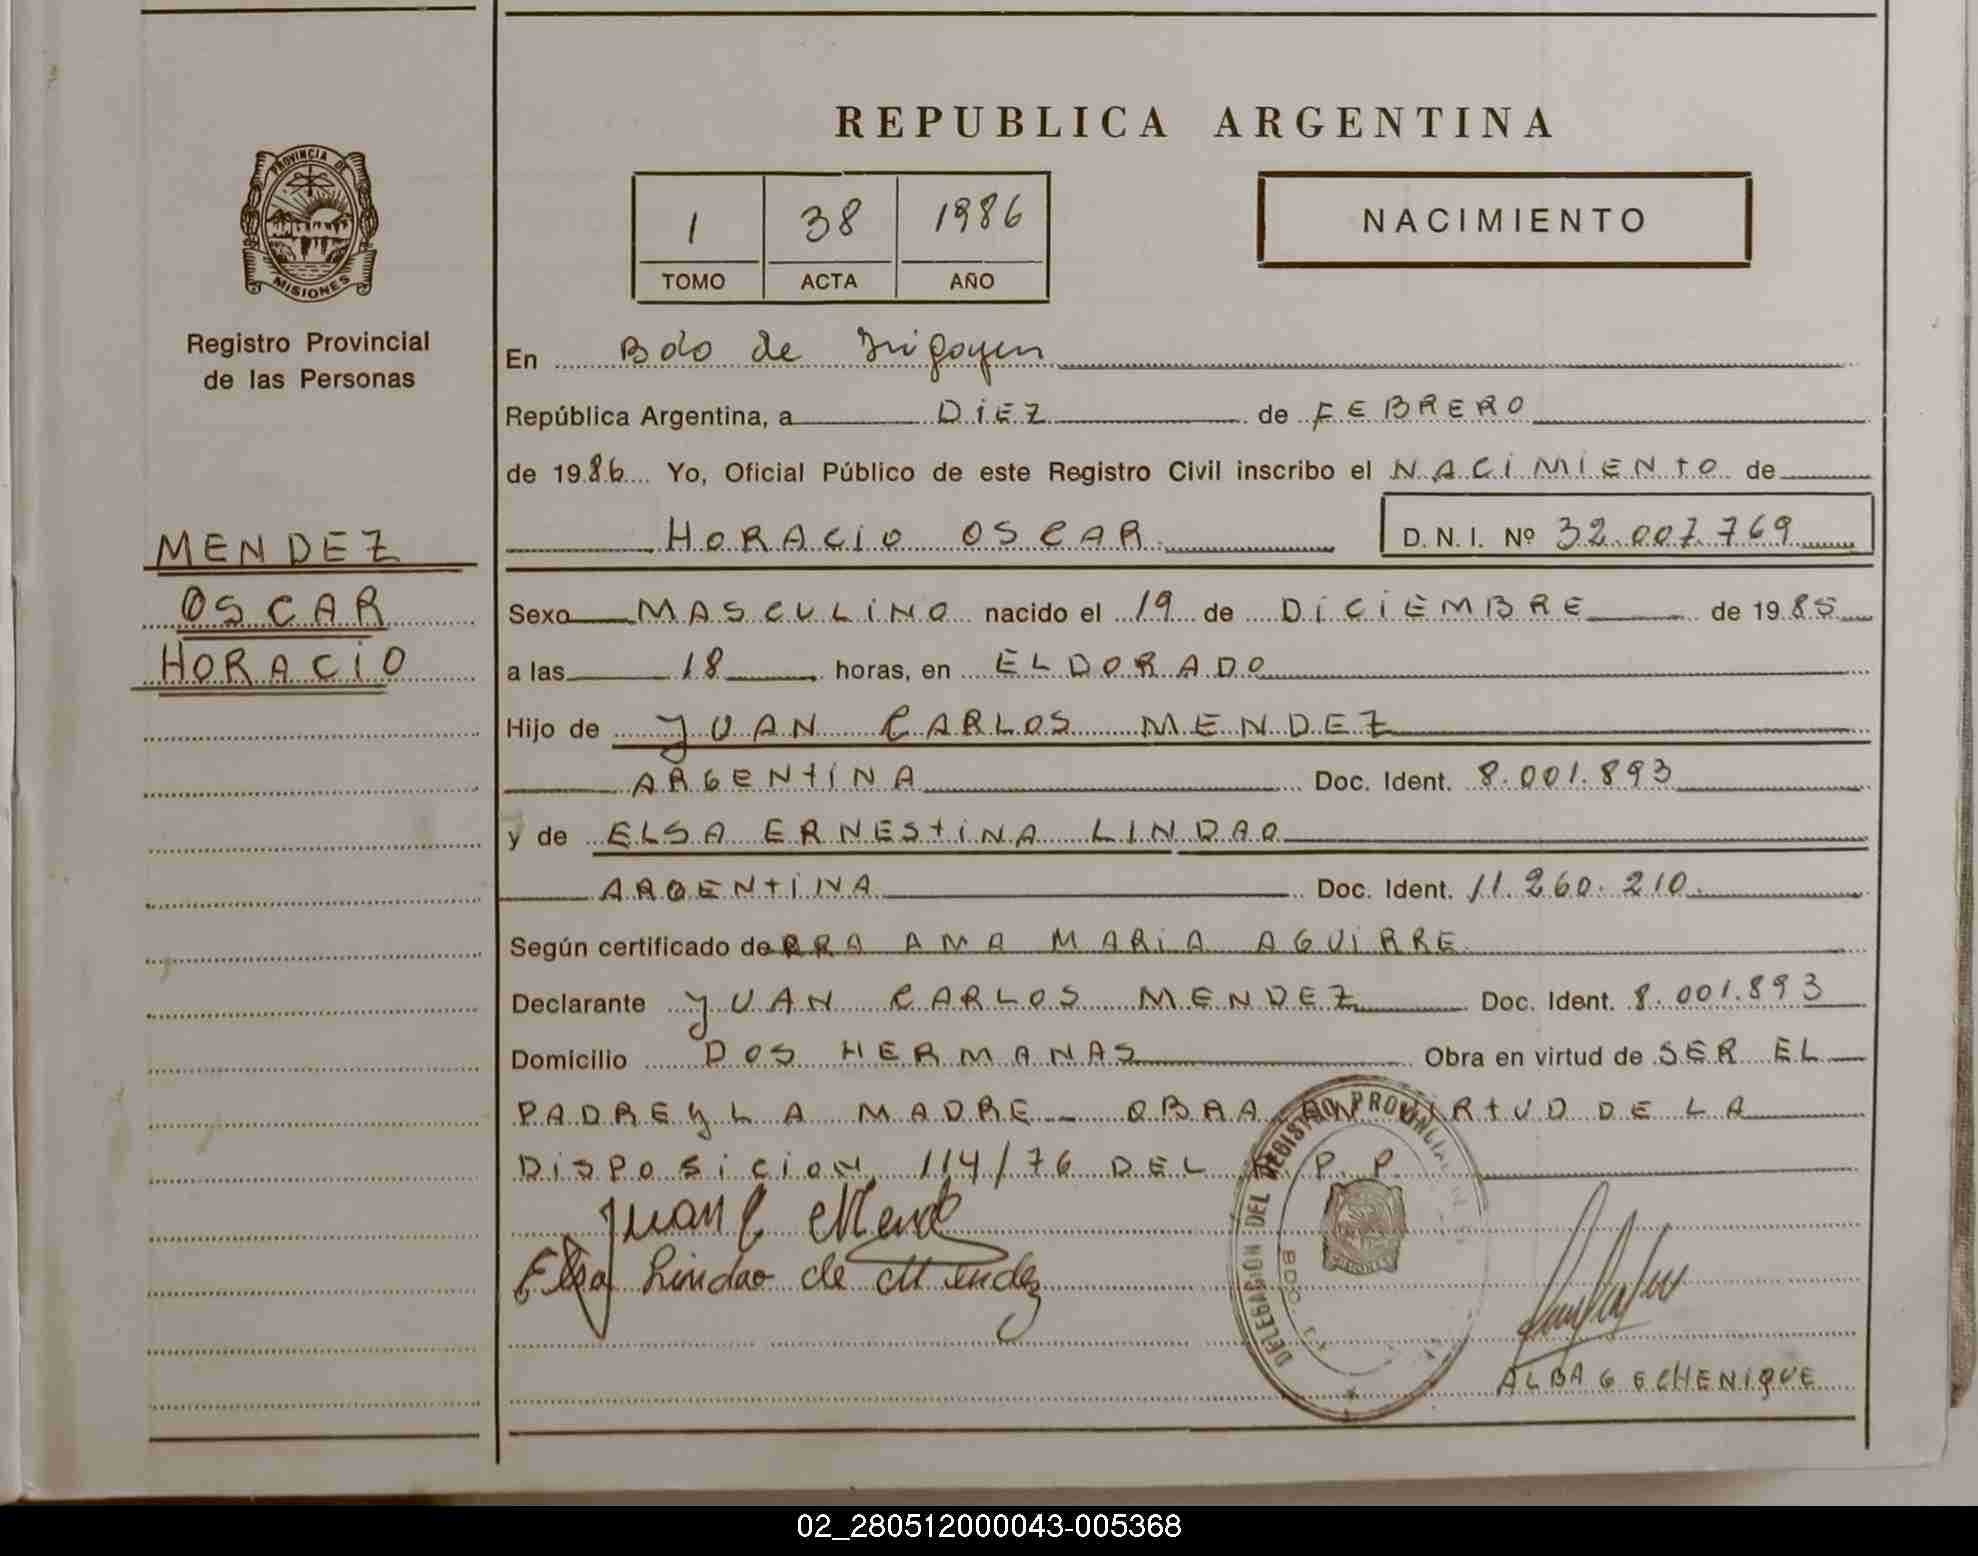 REPUBLICA ARGENTINA
PROVINCIA DE
MISIONES
Registro Provincial
de las Personas
1 38 1986
TOMO ACTA AÑO
NACIMIENTO
En Bdo de Irigoyen
República Argentina, a DIEZ de FEBRERO
de 1986 Yo, Oficial Público de este Registro Civil inscribo el NACIMIENTO de
HORACIO OSCAR D.N.I. Nº 32.007.769
MENDEZ
OSCAR
HORACIO
Sexo MASCULINO nacido el 19 de DICIEMBRE de 1985
a las 18 horas, en ELDORADO
Hijo de JUAN CARLOS MENDEZ
ARGENTINA Doc. Ident. 8.001.893
y de ELSA ERNESTINA LINDAO
ARGENTINA Doc. Ident. 11.260.210
Según certificado de DRA AMA MARIA AGUIRRE
Declarante JUAN CARLOS MENDEZ Doc. Ident. 8.001.893
Domicilio DOS HERMANAS Obra en virtud de SER EL
PADRE y LA MADRE - OBRA EN VIRTUD DE LA
DISPOSICION 114/76 DEL R.P.P.
Juan C Mendez
Elsa Lindao de Mendez
DELEGACION DEL REGISTRO PROVINCIAL
BDO. I
ALBA G ECHENIQUE
02_280512000043-005368